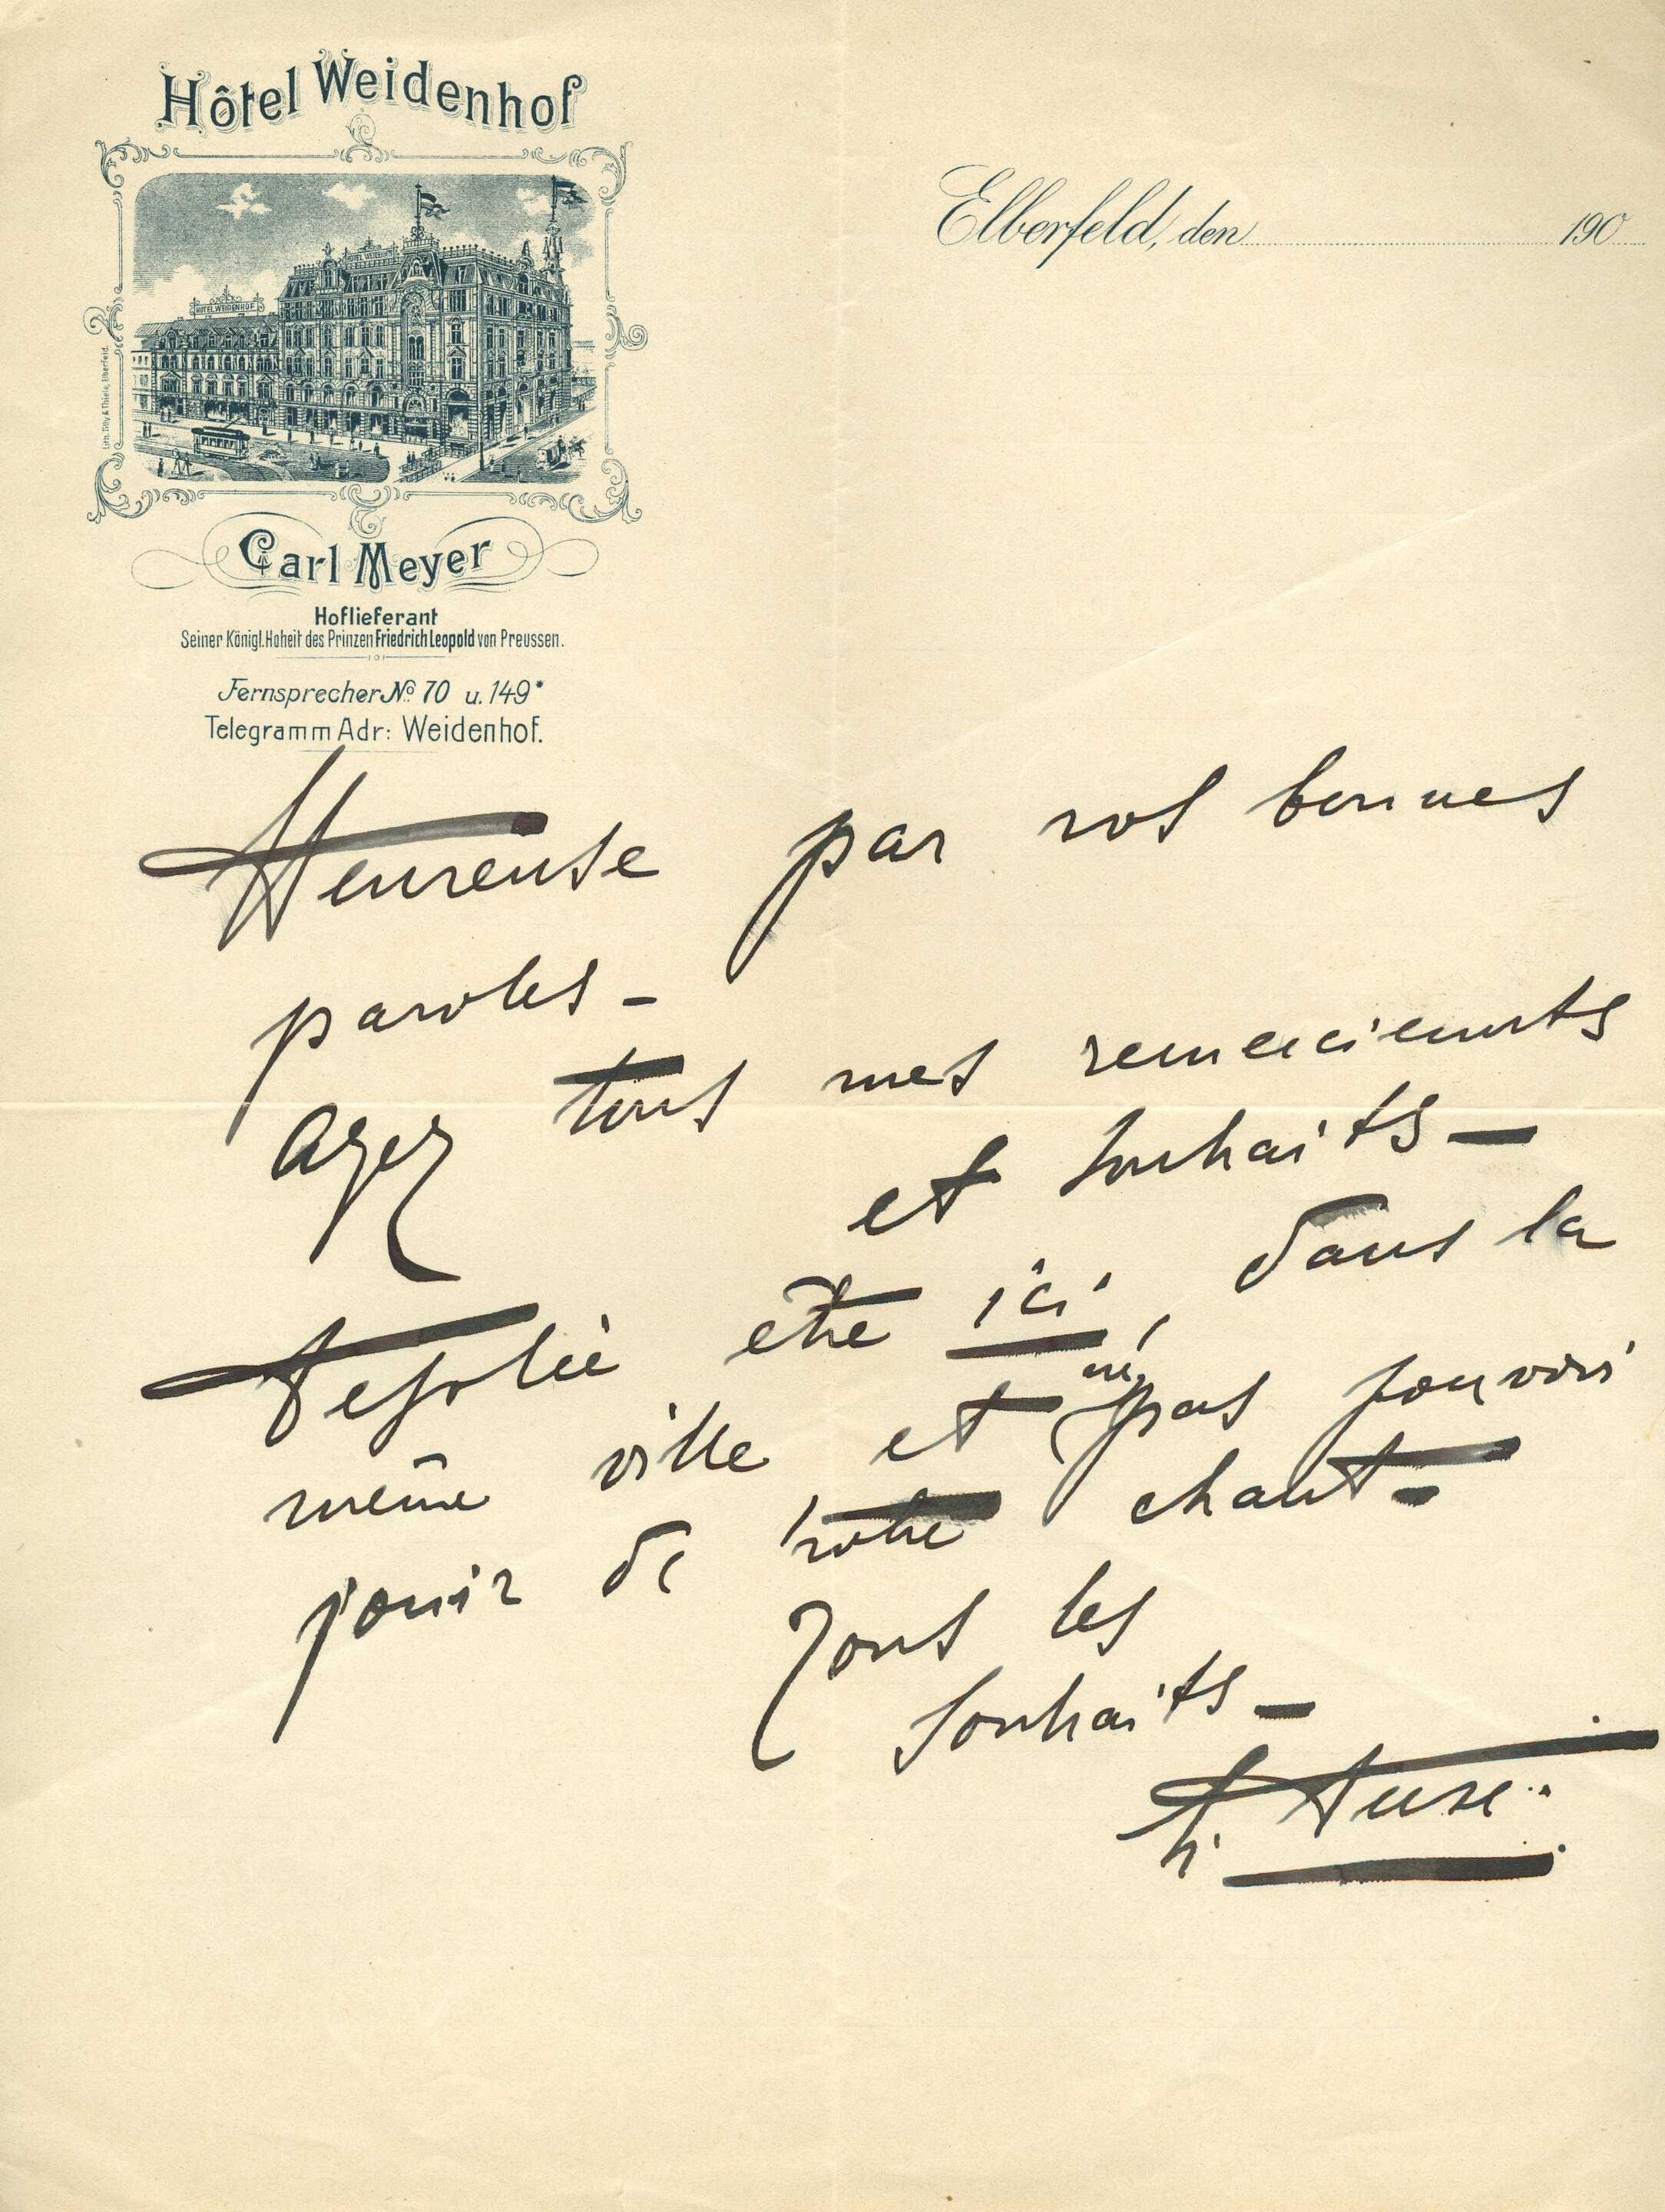 Hôtel Weidenhof
HOTEL WEIDENHOF
Lith. Tilly & Thiele, Elberfeld.
Carl Meyer
Hoflieferant
Seiner Königl. Hoheit des Prinzen Friedrich Leopold von Preussen.
Fernsprecher No. 70 u. 149*
Telegramm Adr: Weidenhof.
Elberfeld, den 190
Heureuse par vos bonnes
paroles -
Ayez tous mes remerciements
et souhaits -
Desolée être ici, dans la
même ville et ne pas pouvoir
jouir de votre chant -
Tous les
souhaits -
E. Duse